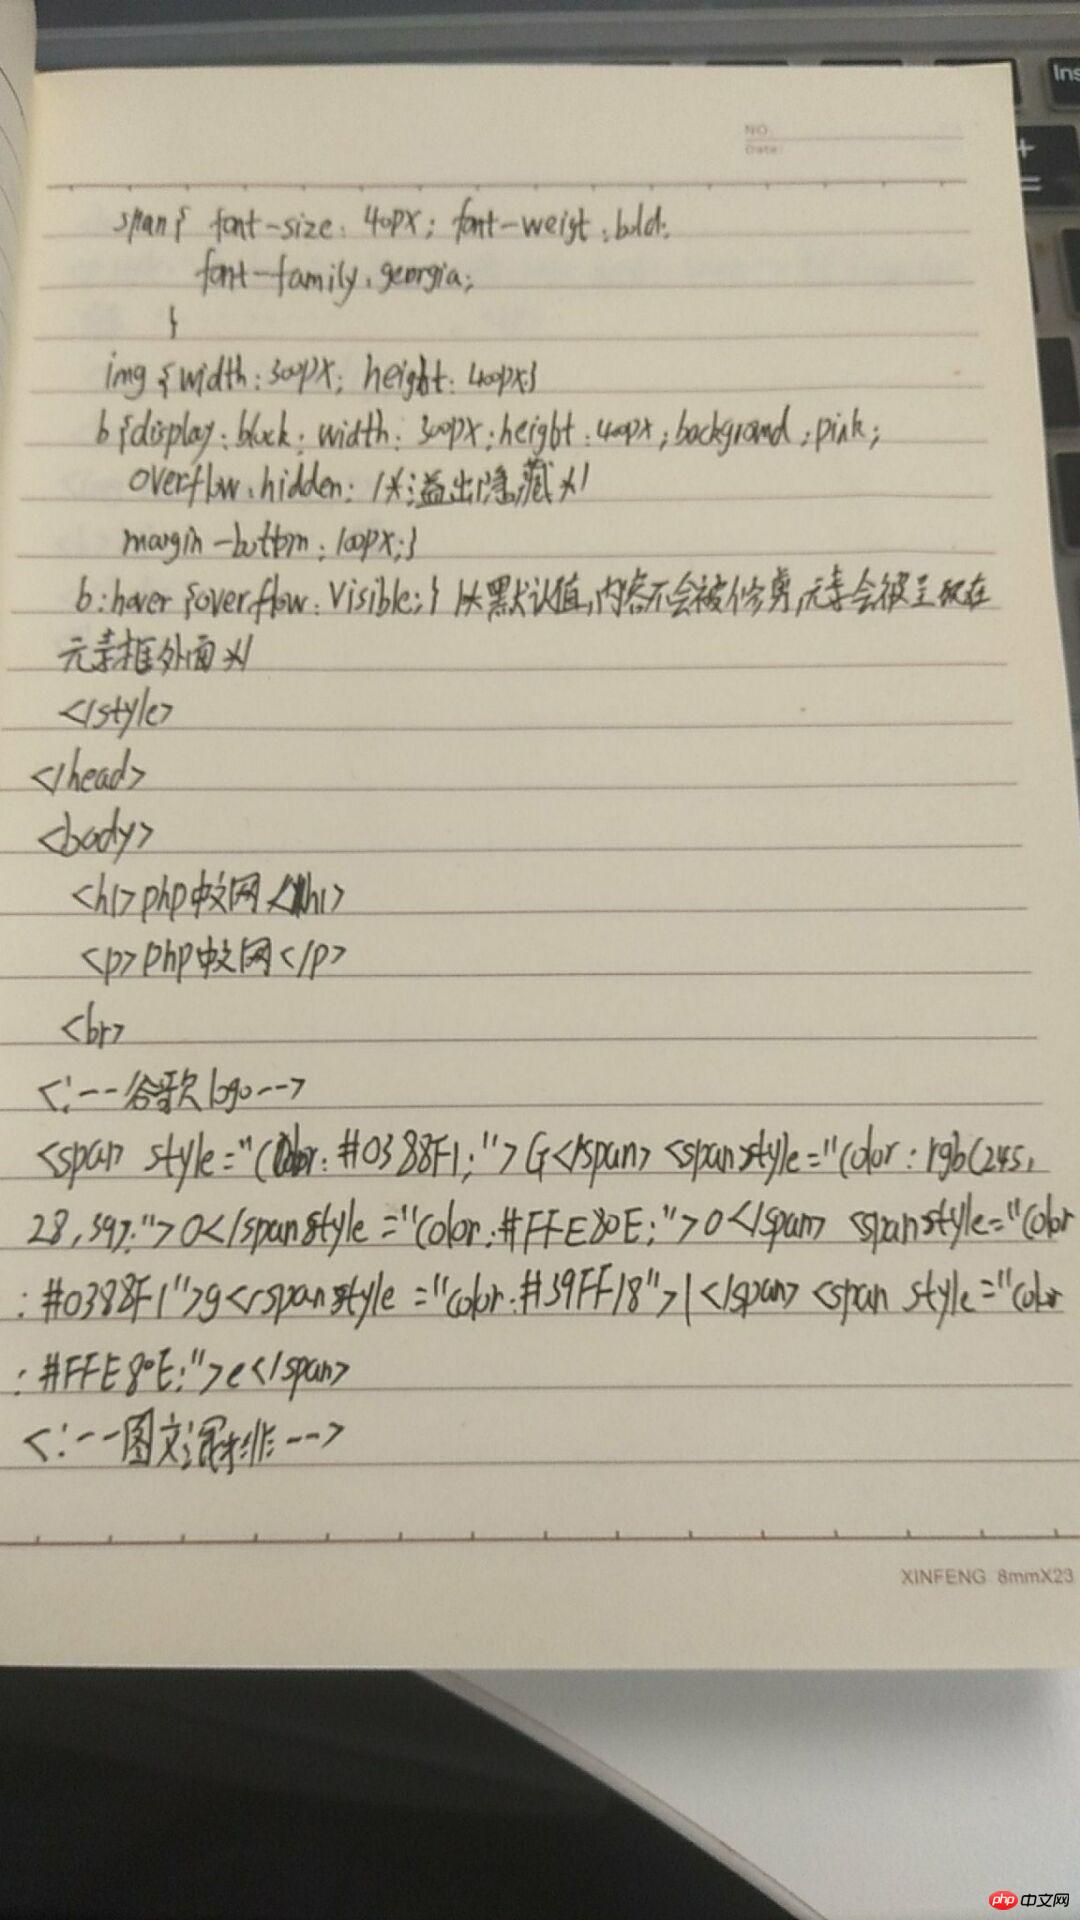 Ins
+
=
NO.
Date:
span{ font-size: 40px; font-weigt: bold;
font-family: georgia;
}
img {width: 300px; height: 400px}
b {display: block; width: 300px; height: 400px; background: pink;
overflow: hidden; /*溢出隐藏*/
margin-bottom: 100px;}
b:hover {overflow: visible;} /*默认值,内容不会被修剪,元素会被呈现在
元素框外面*/
</style>
</head>
<body>
<h1>php中文网</h1>
<p>php中文网</p>
<br>
<!--谷歌logo-->
<span style="Color: #0388F1;">G</span> <span style="Color: rgb(245,
28,39);">O</span style="Color: #FFE80E;">O</span> <span style="Color
: #0388F1">g</span style="Color: #39FF18">l</span> <span style="Color
: #FFE80E;">e</span>
<!--图文混排-->
XINFENG 8mmX23
php 中文网